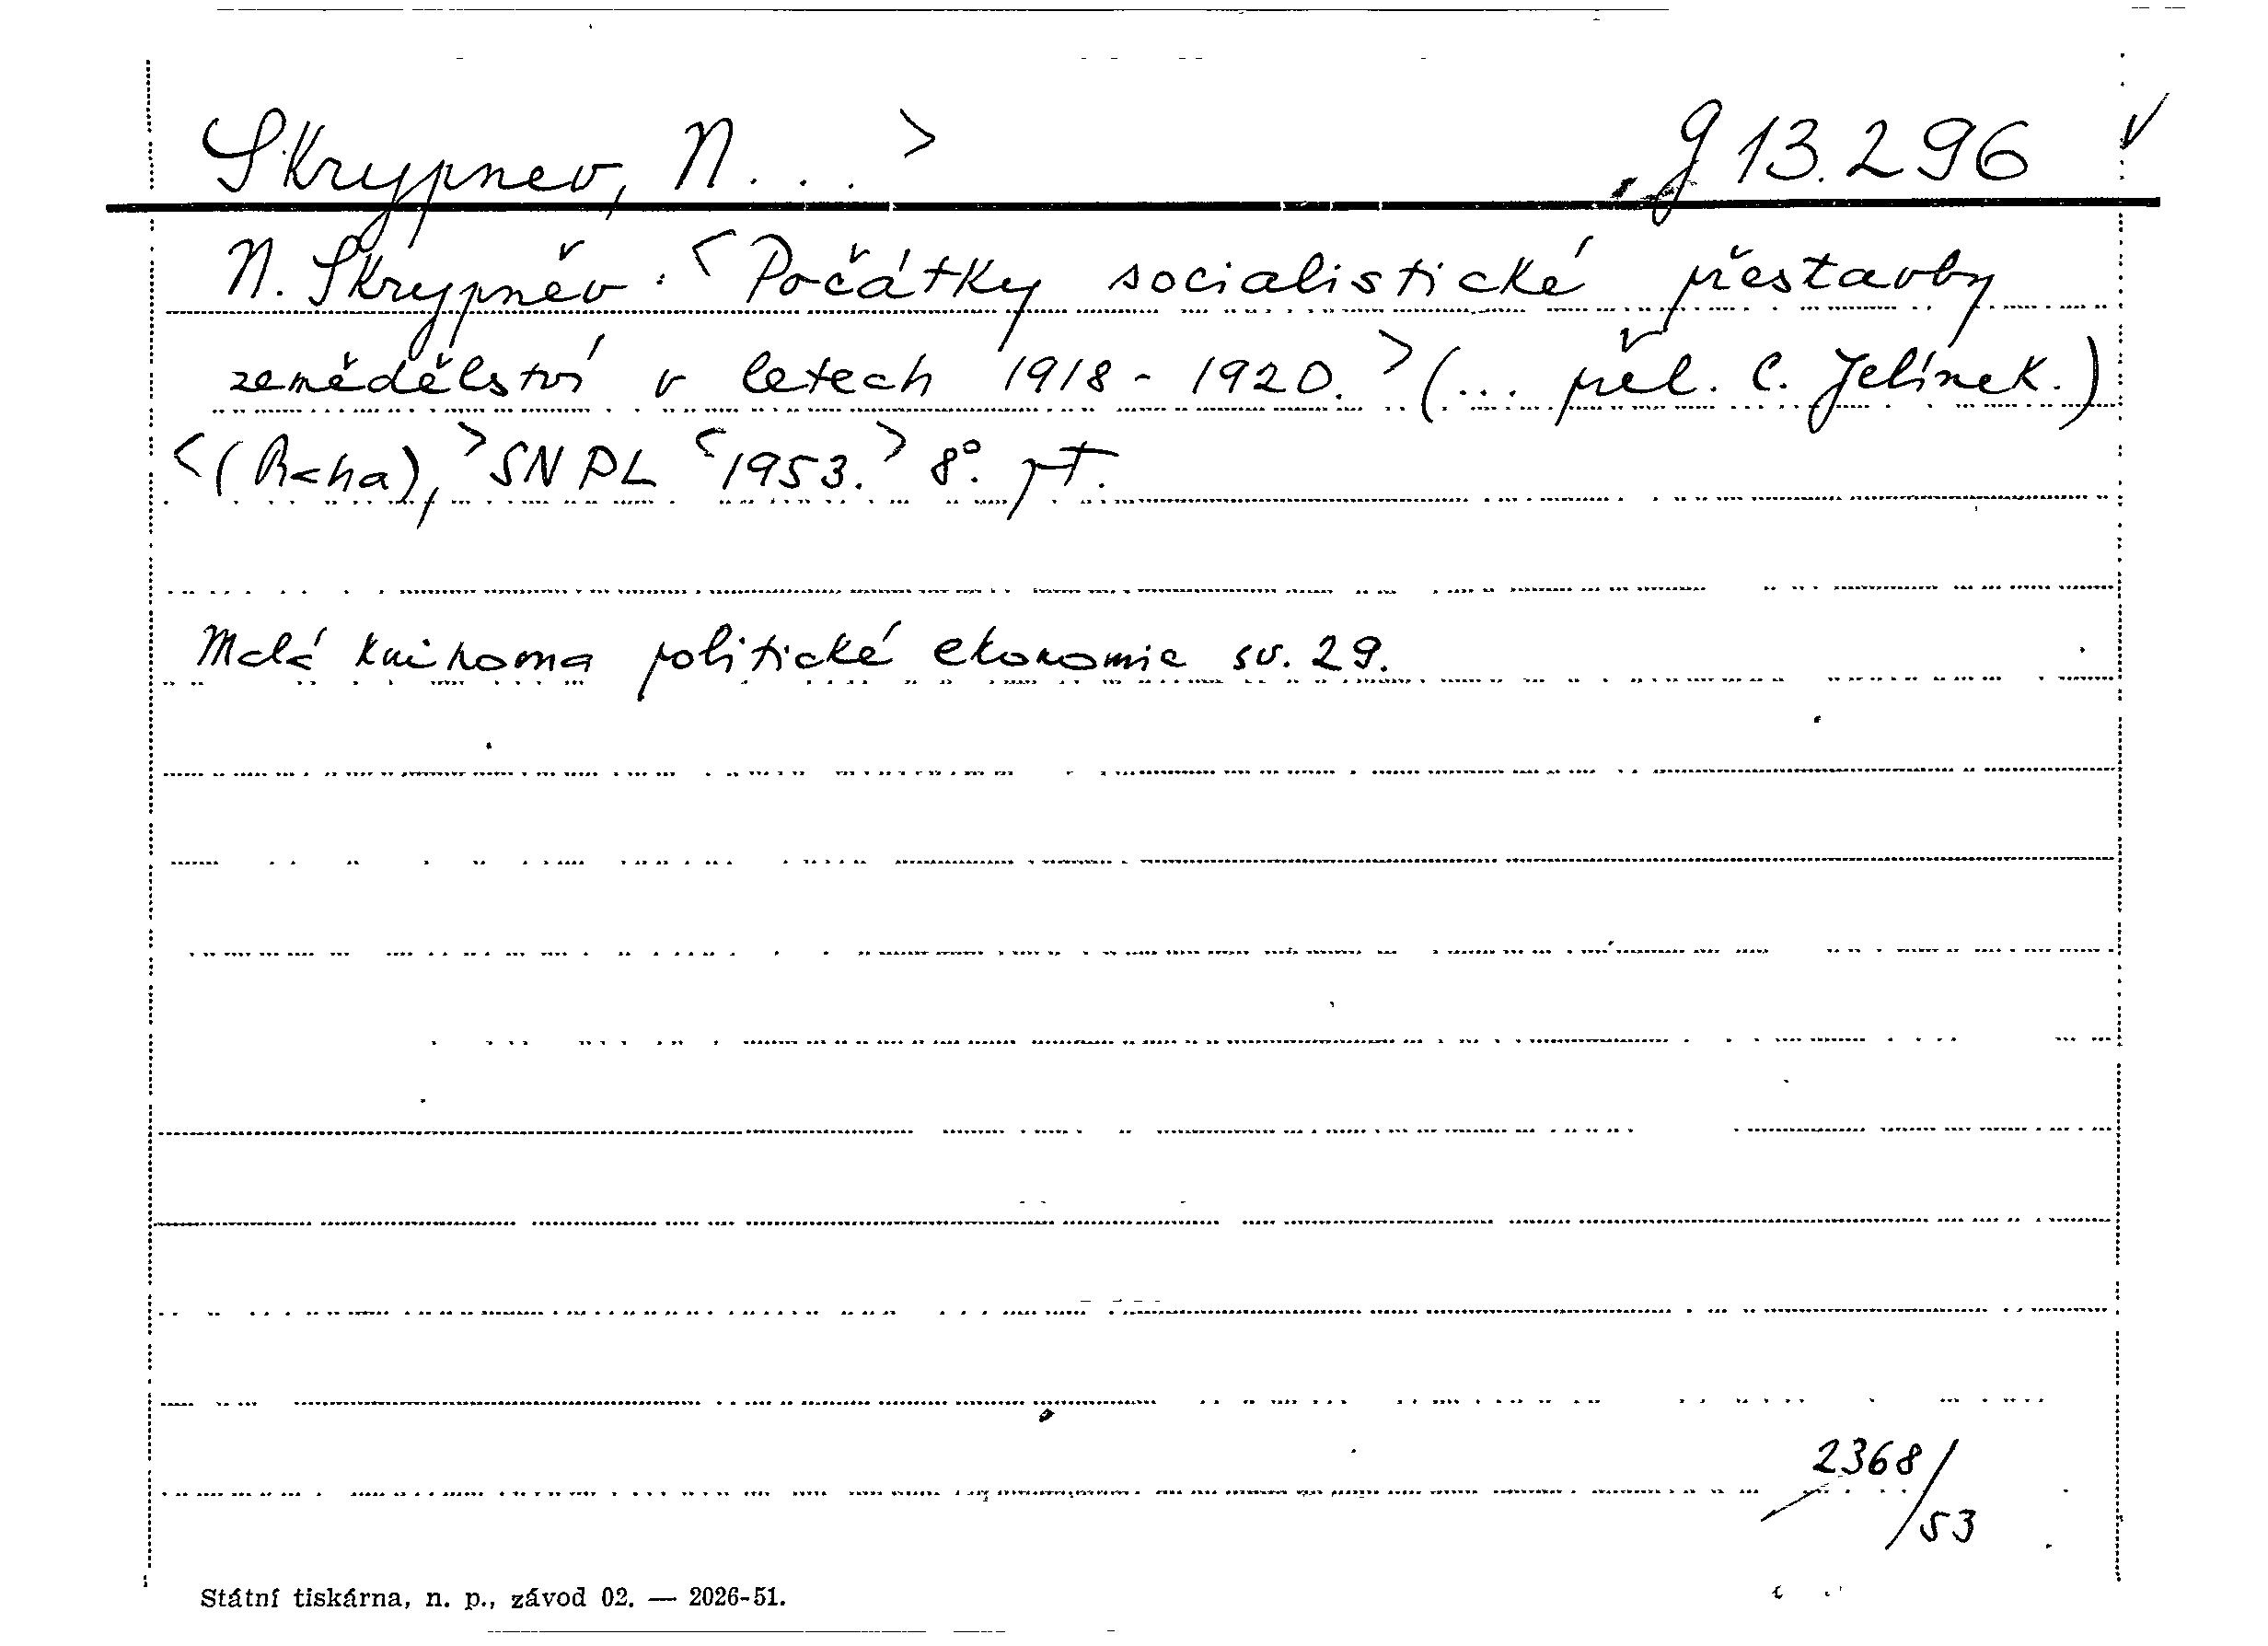 Skrypnev, N... > g 13.296 v
N. Skrypněv: <Počátky socialistické přestavby
zemědělství v letech 1918-1920.> (... přel. C. Jelínek.)
<(Praha),> SNPL <1953.> 8°. pt.
Malá knihovna politické ekonomie sv. 29.
2368/53
Státní tiskárna, n. p., závod 02. — 2026-51.